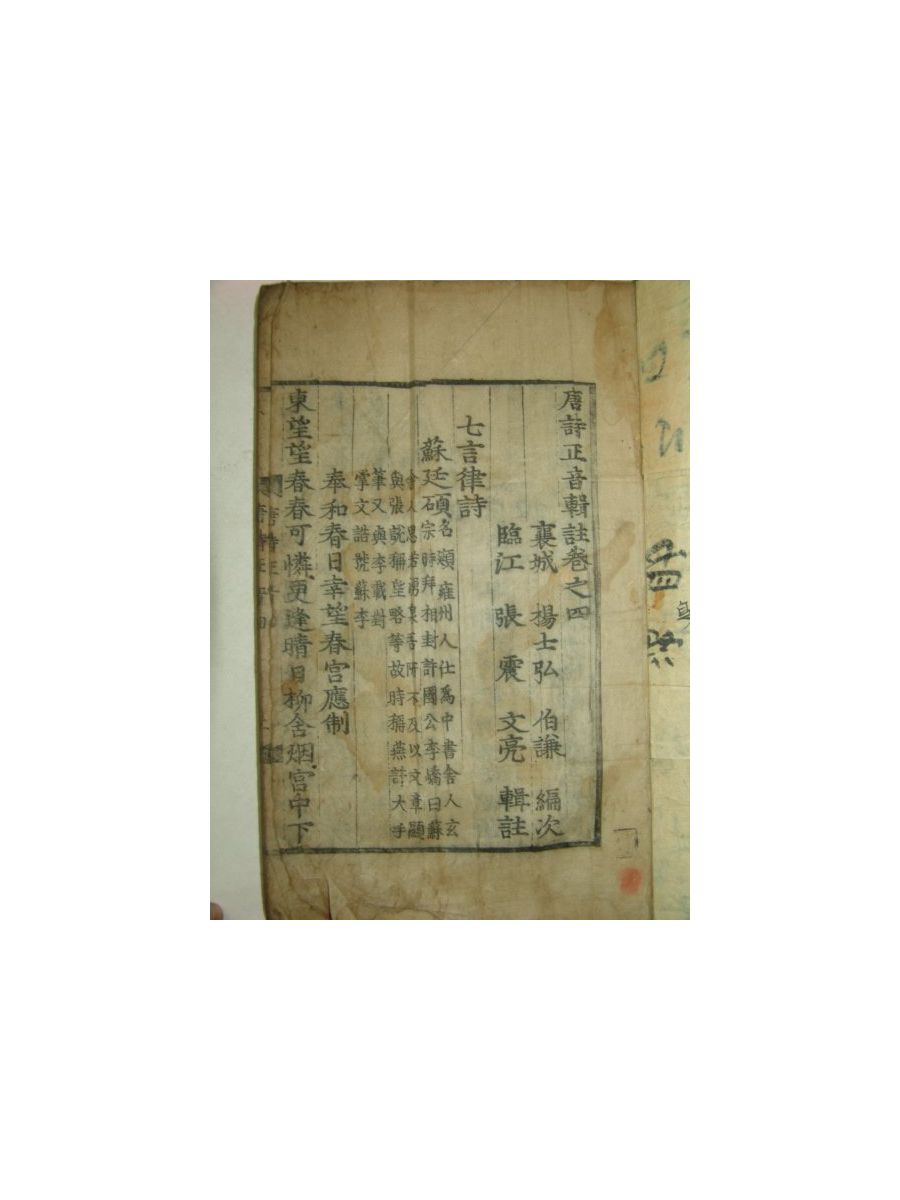 唐詩正音輯註卷之四
襄城 楊士弘 伯謙 編次
臨江 張震 文亮 輯註
七言律詩
蘇廷碩
名顋雍州人仕爲中書舍人玄
宗時拜相封許國公李嶠曰蘇
舍人思若湧泉吾所不及以文章顯
與張說稱望略等故時稱燕許大手
筆又與李載對
掌文誥號蘇李
奉和春日幸望春宮應制
東望望春春可憐更逢晴日柳含烟宮中下